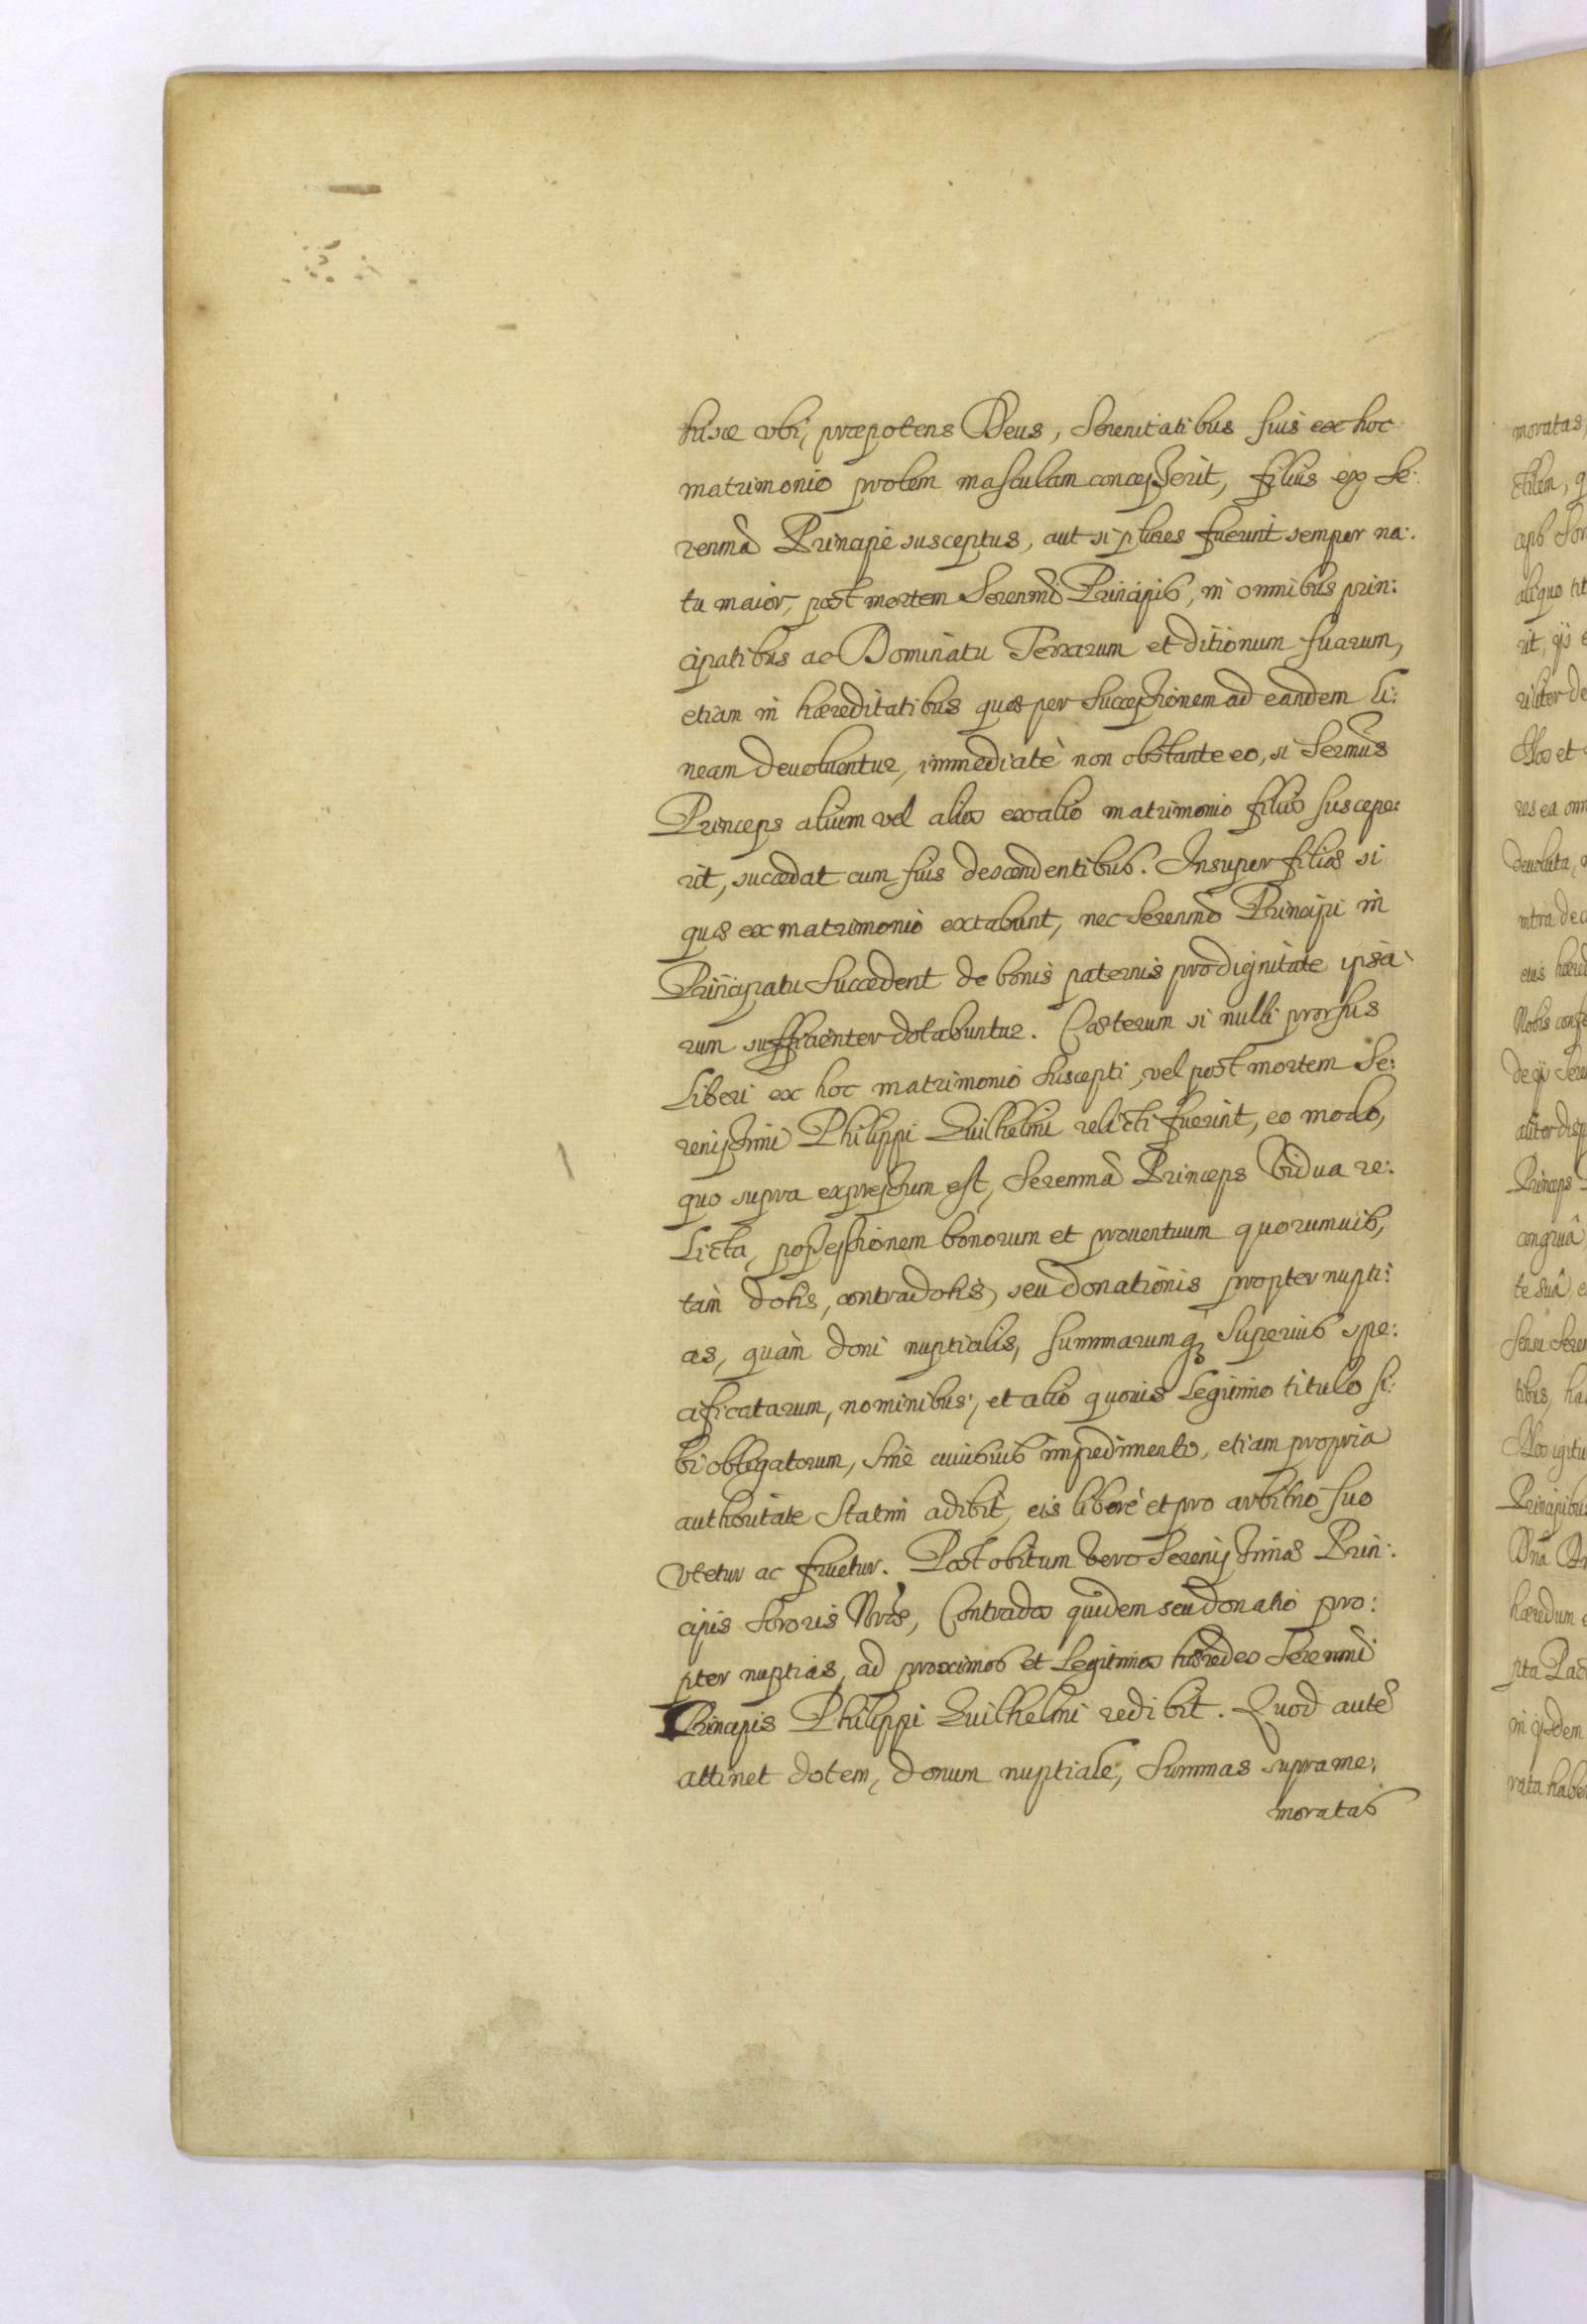 huiæ vbi, præpotens Deus, Serenitatibus suis ex hoc
matrimonio prolem masculam concesserit, filius ex Se:
renmâ Principe susceptus, aut si plures fuerint semper na:
tu maior, post mortem Serenmi Principis, in omnibus prin:
cipatibus ac Dominatu Terrarum et ditionum suarum,
etiam in hæreditatibus quæ per Successionem ad eandem li:
neam deuoluentur, immediatè non obstante eo, si Sermus
Princeps alium vel alios ex alio matrimonio filios suscepe:
rit, succedat cum suis descendentibus. Insuper filios si
quis ex matrimonio extabunt, nec Serenmo Principi in
Principatu succedent de bonis paternis pro dignitate ipsa:
rum sufficienter dotabuntur. Cæterum si nulli prorsus
Liberi ex hoc matrimonio suscepti, vel post mortem Se:
renissimi Philippi Guilhelmi relicti fuerint, eo modo,
quo supra expressum est, Serenmâ Princeps Vidua re:
Licta, possessionem bonorum et prouentuum quorumuis,
tam dotis, contradotis, seu donationis propter nupti:
as, quàm doni nuptialis, summarumq; superius spe:
cificatarum, nominibus, et alio quouis Legitimo titulo si:
bi obligatorum, sinè cuiusuis impedimento, etiam propria
authoritate statim adibit, eis liberè et pro arbitrio suo
vtetur ac fruetur. Post obitum vero Serenissimæ Prin:
cipis Sororis Nræ, Contrados quidem seu donatio pro:
pter nuptias, ad proximos et Legitimos hæredes Serenmi
Principis Philippi Guilhelmi redibit. Quod autẽ
attinet dotem, donum nuptiale, Summas supra me:
moratas
moratas,
ris ea omn
deuoluta,
Nobis
Princeps
congruâ
te suâ,
tibus, ha
Nos igitu
Principibus
hæredum
pta Pac
rata habe